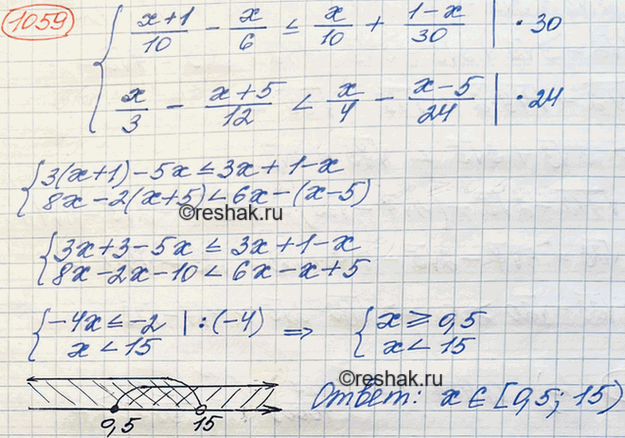 1059
{ (x+1)/10 - x/6 ≤ x/10 + (1-x)/30 | · 30
{ x/3 - (x+5)/12 < x/4 - (x-5)/24 | · 24
{ 3(x+1) - 5x ≤ 3x + 1 - x
{ 8x - 2(x+5) < 6x - (x-5)
©reshak.ru
{ 3x + 3 - 5x ≤ 3x + 1 - x
{ 8x - 2x - 10 < 6x - x + 5
{ -4x ≤ -2 | : (-4) => { x ≥ 0,5
{ x < 15 { x < 15
©reshak.ru
0,5 15 Ответ: x ∈ [0,5; 15)